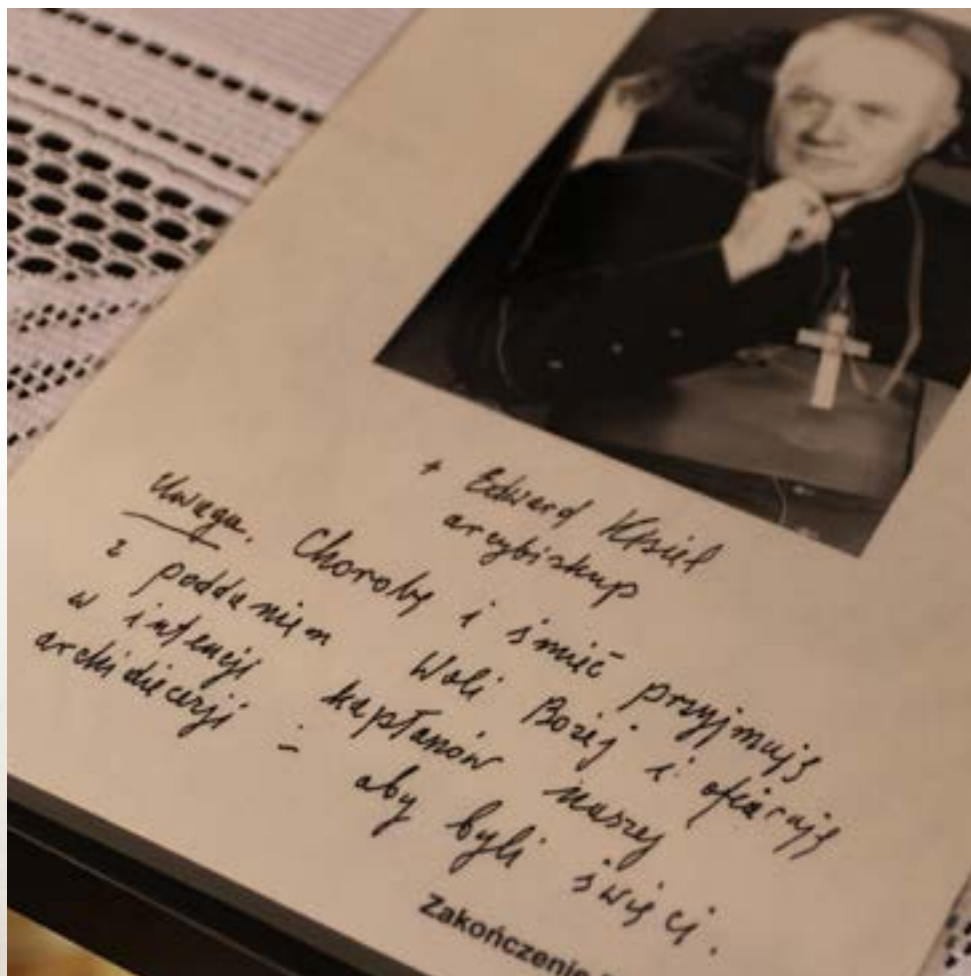 + Edward Kisiel
arcybiskup
Uwaga. Chorobę i śmierć przyjmuję
z poddaniem Woli Bożej i ofiaruję
w intencji kapłanów naszej
archidiecezji – aby byli święci.
Zakończenie